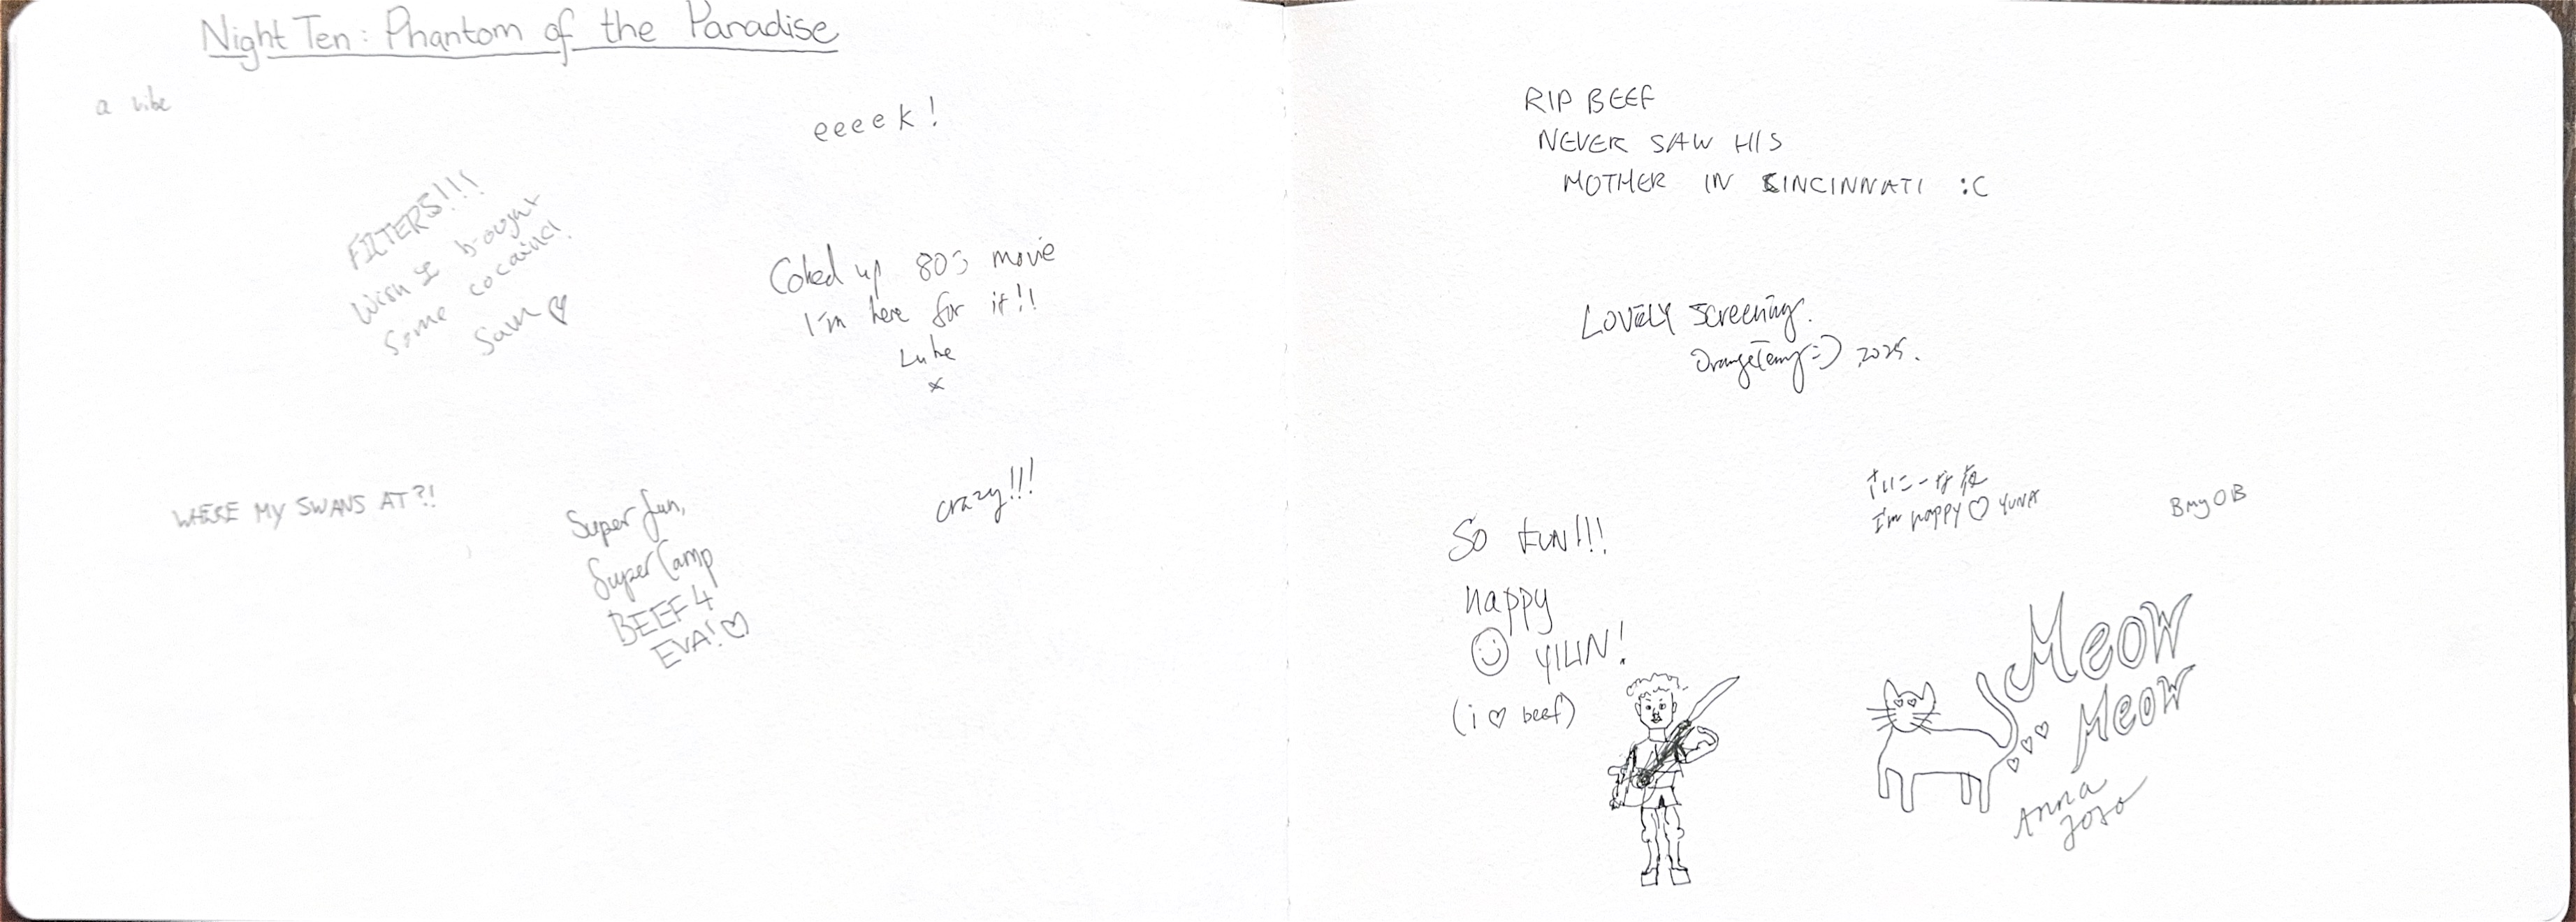 Night Ten: Phantom of the Paradise
a vibe
eeeek!
FILTERS!!!
Wish I bought
Some cocaine!
Sam
Coked up 80s movie
I'm here for it!!
Luke
x
WHERE MY SWANS AT?!
Super fun,
Super Camp
BEEF 4
EVA!
crazy!!!
RIP BEEF
NEVER SAW HIS
MOTHER IN CINCINNATI :C
LOVELY screening.
:) 2025.
So FUN!!!
happy
YILIN!
(i ♡ beef)
I'm happy ♡ YUNA
BMyOB
Meow
Meow
Anna
JoJo